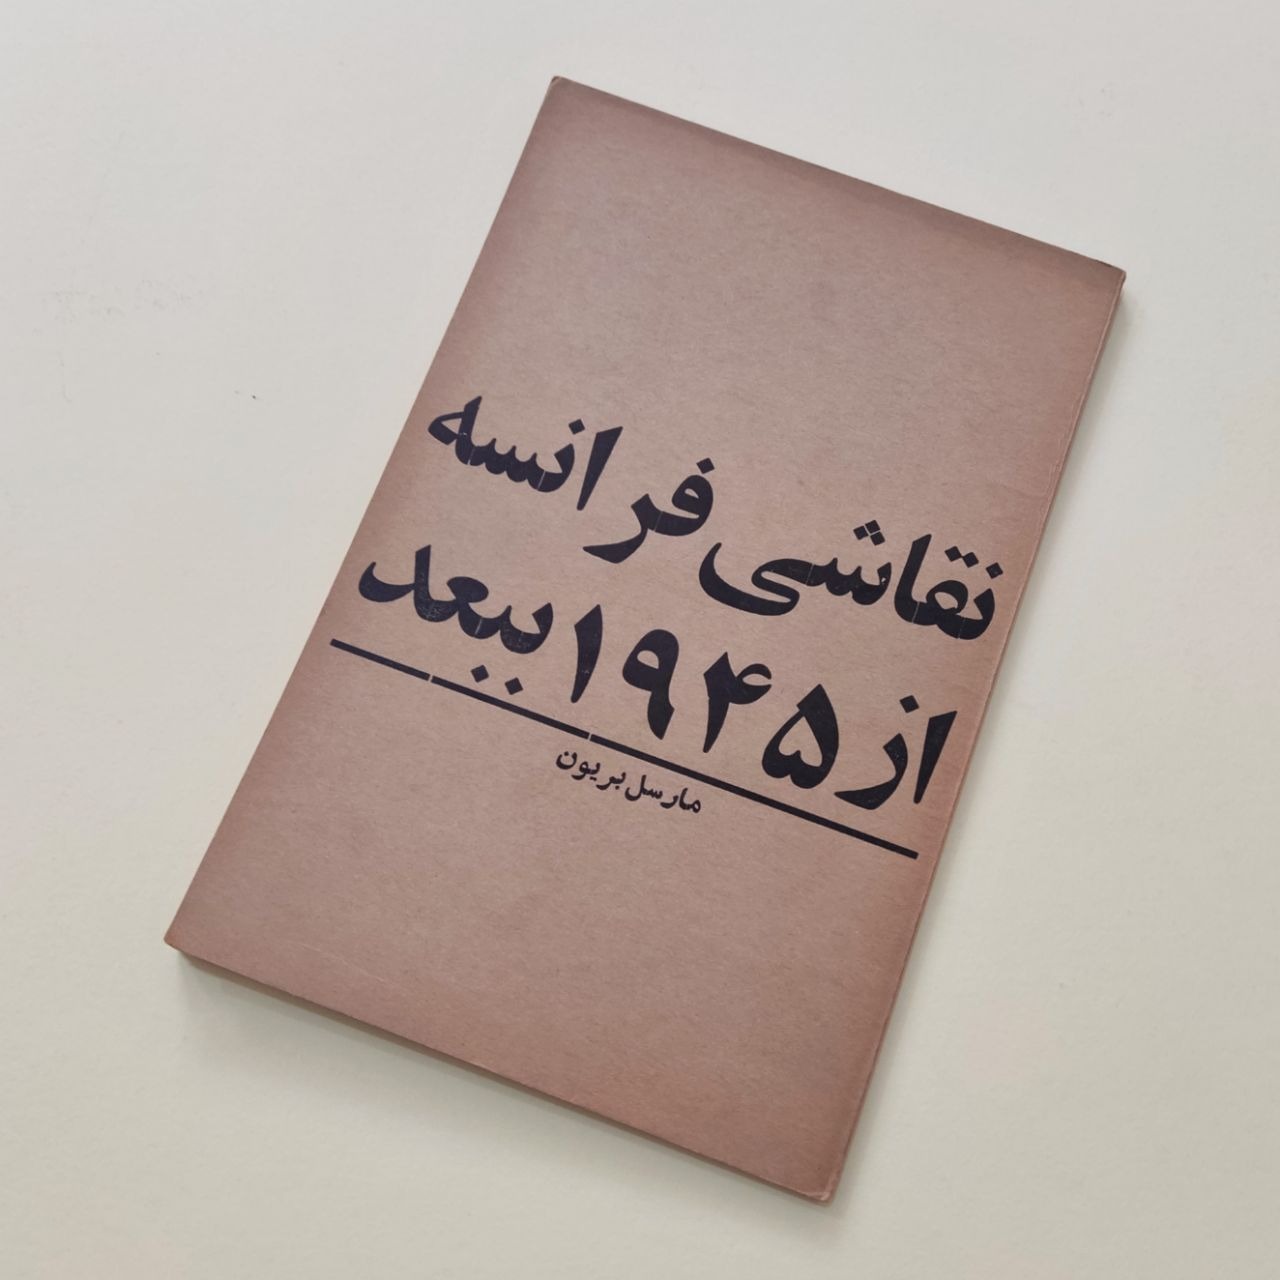 نقاشی فرانسه
از ۱۹۴۵ ببعد
مارسل بریون